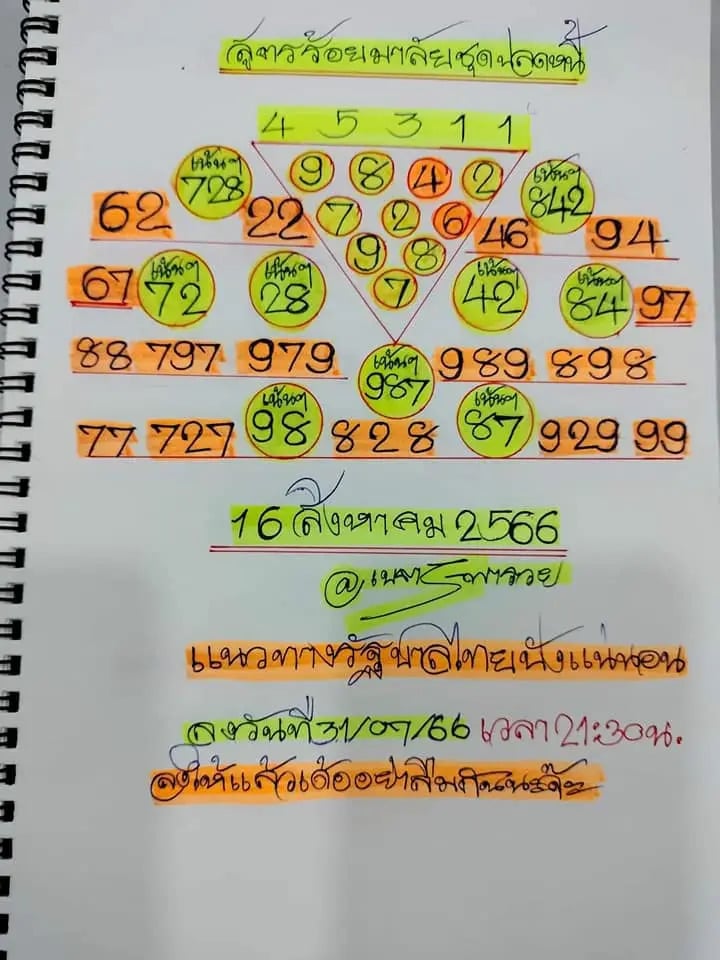 สูตรร้อยมาลัยชุดปลดหนี้
4 5 3 1 1
9 8 4 2
เน้นๆ 728
เน้นๆ 842
62 22
7 2 6
46 94
9 8
67 เน้นๆ 72 เน้นๆ 28
7
เน้นๆ 42 เน้นๆ 84 97
88 797 979 เน้นๆ 987 989 898
77 727 เน้นๆ 98 828 เน้นๆ 87 929 99
16 สิงหาคม 2566
แนวทางรัฐบาลไทยปังแน่นอน
ลงวันที่ 31/07/66 เวลา 21:30น.
ลงให้แล้วเด้ออย่าลืมกันนะ